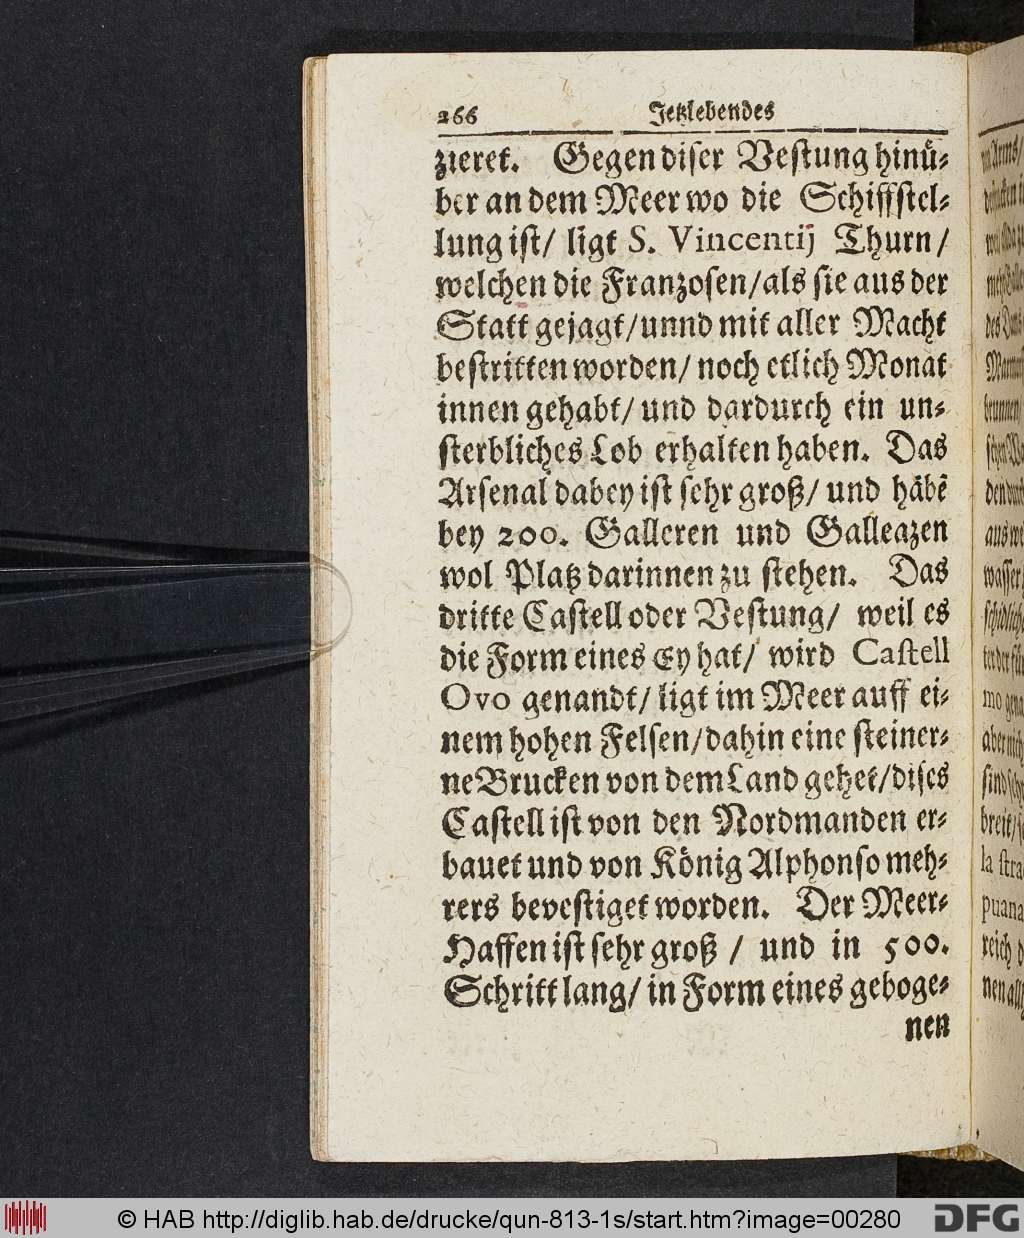 266 Jetzlebendes
zieret. Gegen diser Vestung hinü-
ber an dem Meer wo die Schiffstel-
lung ist/ ligt S. Vincentij Thurn/
welchen die Franzosen/als sie aus der
Statt gejagt/unnd mit aller Macht
bestritten worden/ noch etlich Monat
innen gehabt/ und dardurch ein un-
sterbliches Lob erhalten haben. Das
Arsenal dabey ist sehr groß/ und häbẽ
bey 200. Galleren und Galleazen
wol Platz darinnen zu stehen. Das
dritte Castell oder Vestung/ weil es
die Form eines Ey hat/ wird Castell
Ovo genandt/ ligt im Meer auff ei-
nem hohen Felsen/dahin eine steiner-
ne Brucken von dem Land gehet/dises
Castell ist von den Nordmanden er-
bauet und von König Alphonso meh-
rers bevestiget worden. Der Meer-
Haffen ist sehr groß / und in 500.
Schritt lang/ in Form eines geboge-
nen
© HAB http://diglib.hab.de/drucke/qun-813-1s/start.htm?image=00280 DFG